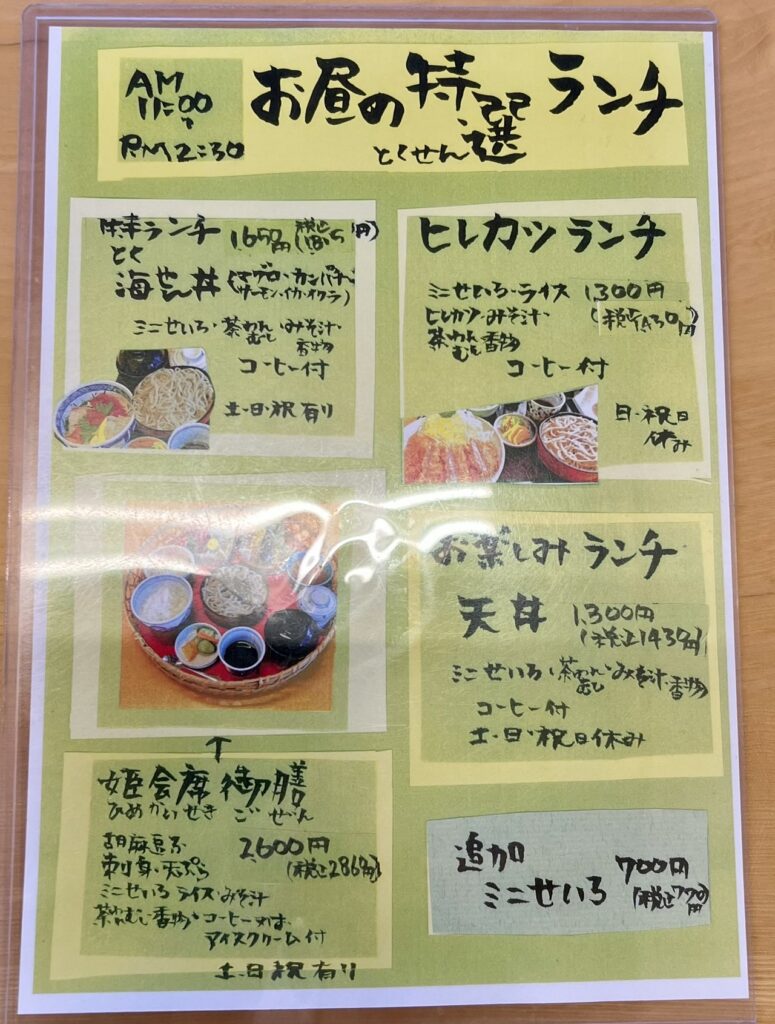 AM
11:00
〜
P.M 2:30
お昼の特選 ランチ
とくせん
特ランチ 1,650円
とく
海せん丼 (マグロ・カンパチ・
サーモン・イカ・イクラ)
ミニせいろ・茶わんむし・みそ汁・
香物
コーヒー付
土・日・祝有り
ヒレカツランチ
ミニせいろ・ライス 1,300円
ヒレカツ・みそ汁・ (税込1,430円)
茶わんむし・香物
コーヒー付
日・祝日
休み
お楽しみランチ
天丼 1,300円
(税込1,430円)
ミニせいろ・茶わんむし・みそ汁・香物
コーヒー付
土・日・祝日休み
↑
姫会席御膳
ひめかいせきごぜん
胡麻豆ふ 2,600円
刺身・天ぷら (税込2,860円)
ミニせいろ ライス・みそ汁
茶わんむし・香物・コーヒー又は、
アイスクリーム付
土・日・祝有り
追加
ミニせいろ 700円
(税込770円)